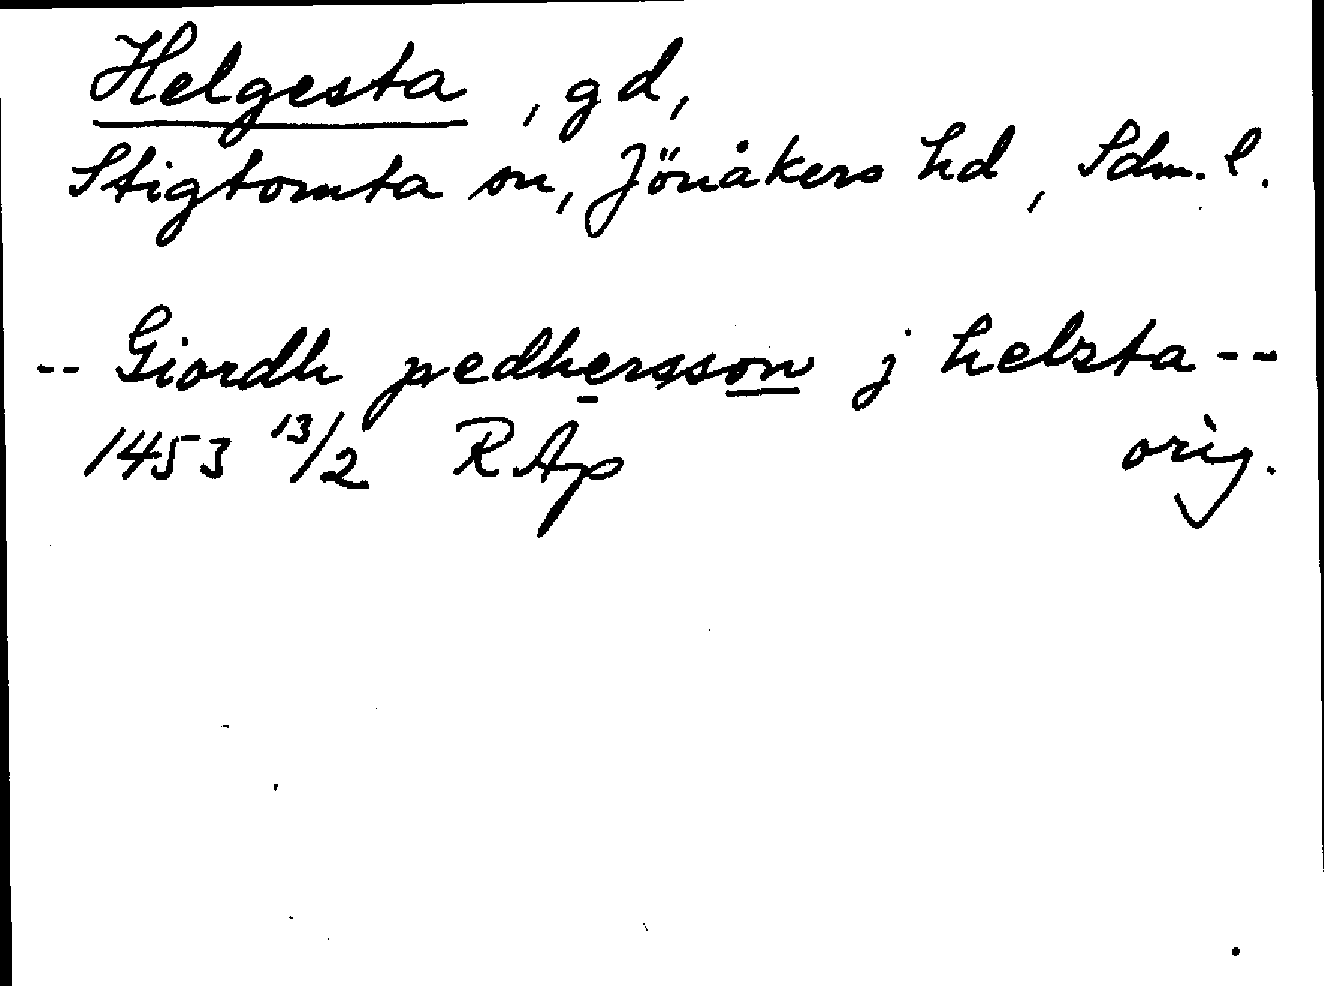 Helgesta, gd,
Stigtomta sn, Jönåkers hd, Sdm. l.
-- Giordh pedhersson j helzta --
1453 13/2 RAp orig.